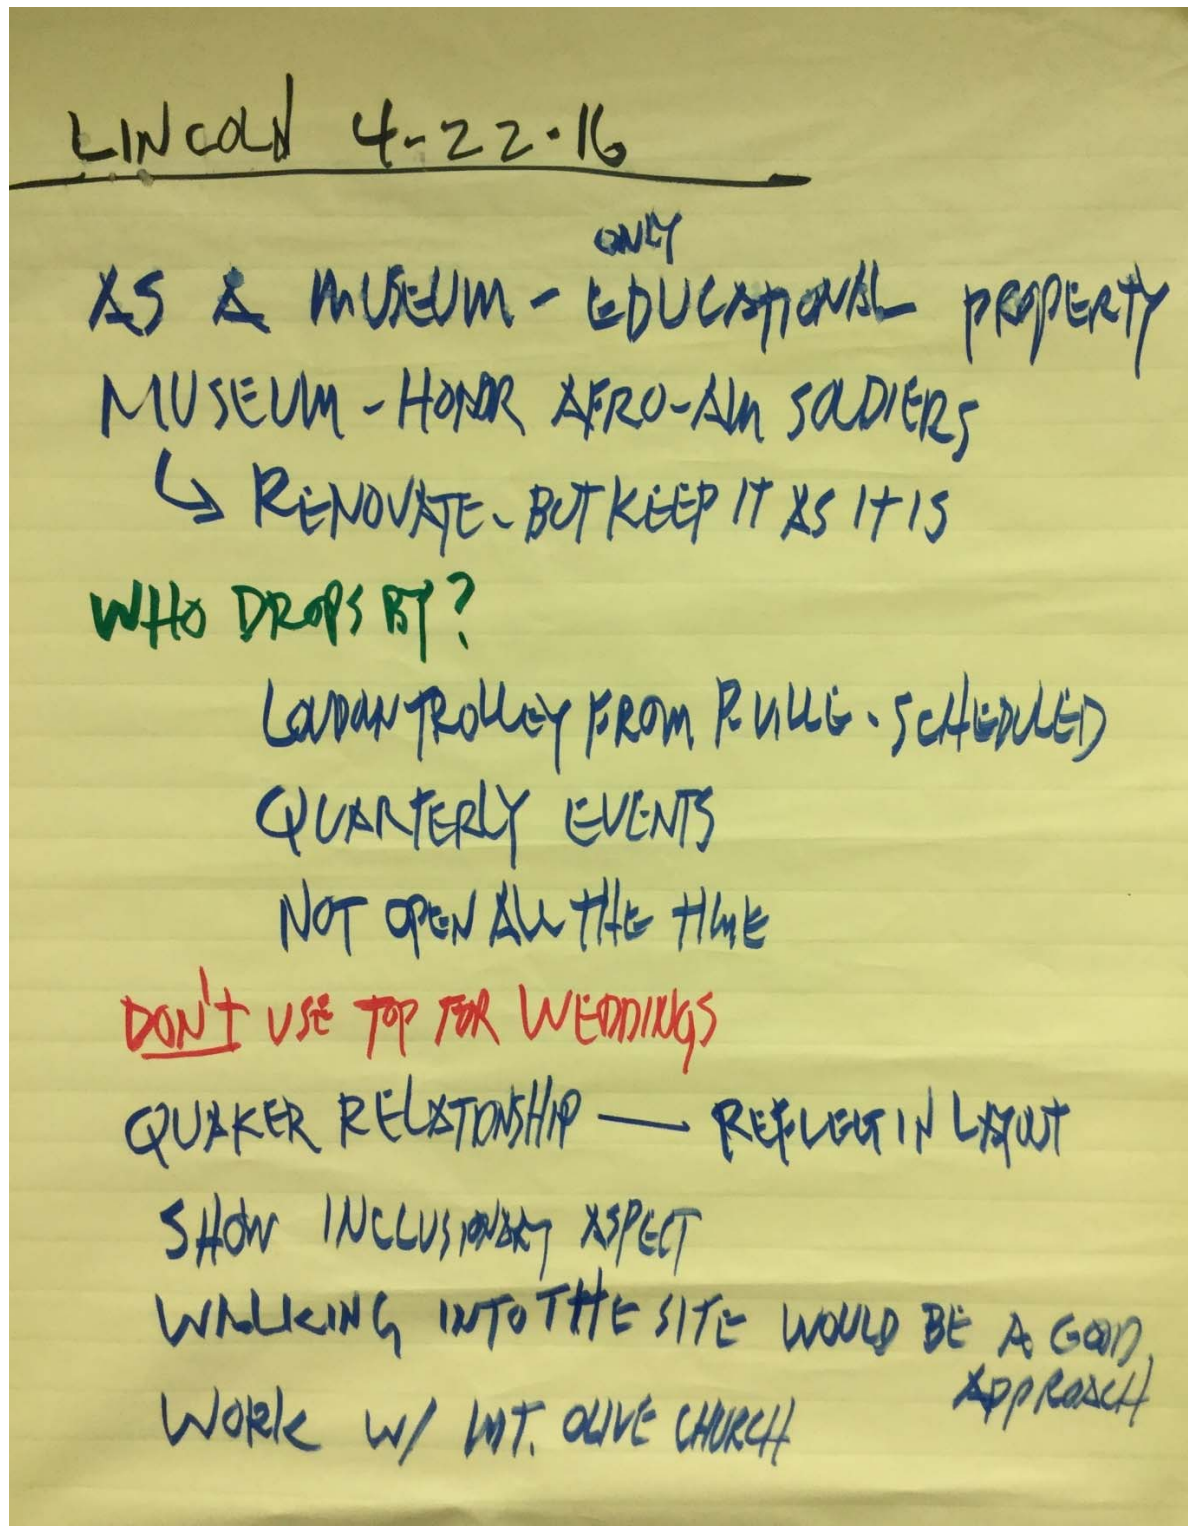 LINCOLN 4-22-16
ONLY
AS A MUSEUM - EDUCATIONAL PROPERTY
MUSEUM - HONOR AFRO-AM SOLDIERS
↳ RENOVATE - BUT KEEP IT AS IT IS
WHO DROPS BY?
LOUDOUN TROLLEY FROM P.VILLE - SCHEDULED
QUARTERLY EVENTS
NOT OPEN ALL THE TIME
DON'T USE TOP FOR WEDDINGS
QUAKER RELATIONSHIP — REFLECT IN LAYOUT
SHOW INCLUSIONARY ASPECT
WALKING INTO THE SITE WOULD BE A GOOD
APPROACH
WORK W/ MT. OLIVE CHURCH